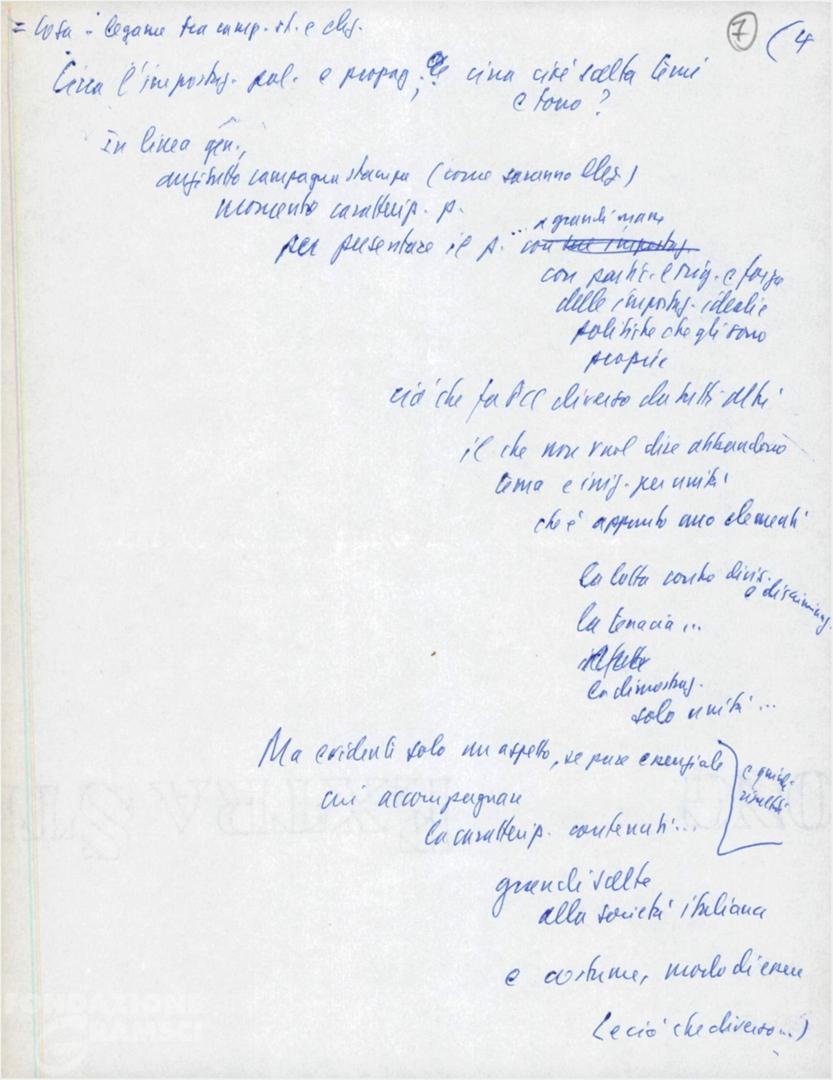 = Cosa - legame tra camp. st. e elez.
7 (4
Circa l'impostaz. pol. e propag., circa cioè scelta temi
e tono?
In linea gen.,
anzitutto campagna stampa (come saranno elez)
momento caratteriz. p.
a grandi mane
per presentare il p. ... con
con partic. e forza
delle impostaz. ideali e
politiche che gli sono
proprie
ciò che fa PCI diverso da tutti altri
il che non vuol dire abbandono
tema e iniz. per unità
che è appunto uno elementi
la lotta contro divis.
e discriminaz.
la tenacia ...
la dimostraz.
solo unità ...
Ma evidenti solo un aspetto, se pure essenziale
e quindi
cui accompagnare
la caratteriz. contenuti ...
grandi scelte
alla società italiana
e costume, modo di essere
(e ciò che diverso ...)
FONDAZIONE
GRAMSCI
EXTRA